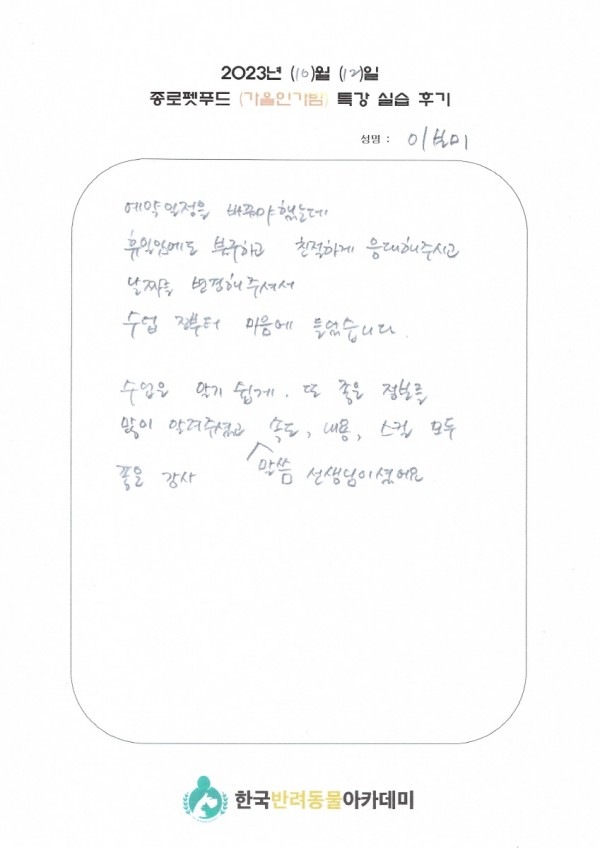 2023년 (10)월 (12)일
종로펫푸드 (가을인가범) 특강 실습 후기
성명 : 이보미
예약일정을 바꿔야했는데
휴일임에도 불구하고 친절하게 응대해주시고
날짜를 변경해주셔서
수업 전부터 마음에 들었습니다.
수업은 알기 쉽게. 또 좋은 정보를
많이 알려주셨고 속도, 내용, 스킬 모두
좋은 강사 말씀 선생님이셨어요
한국반려동물아카데미